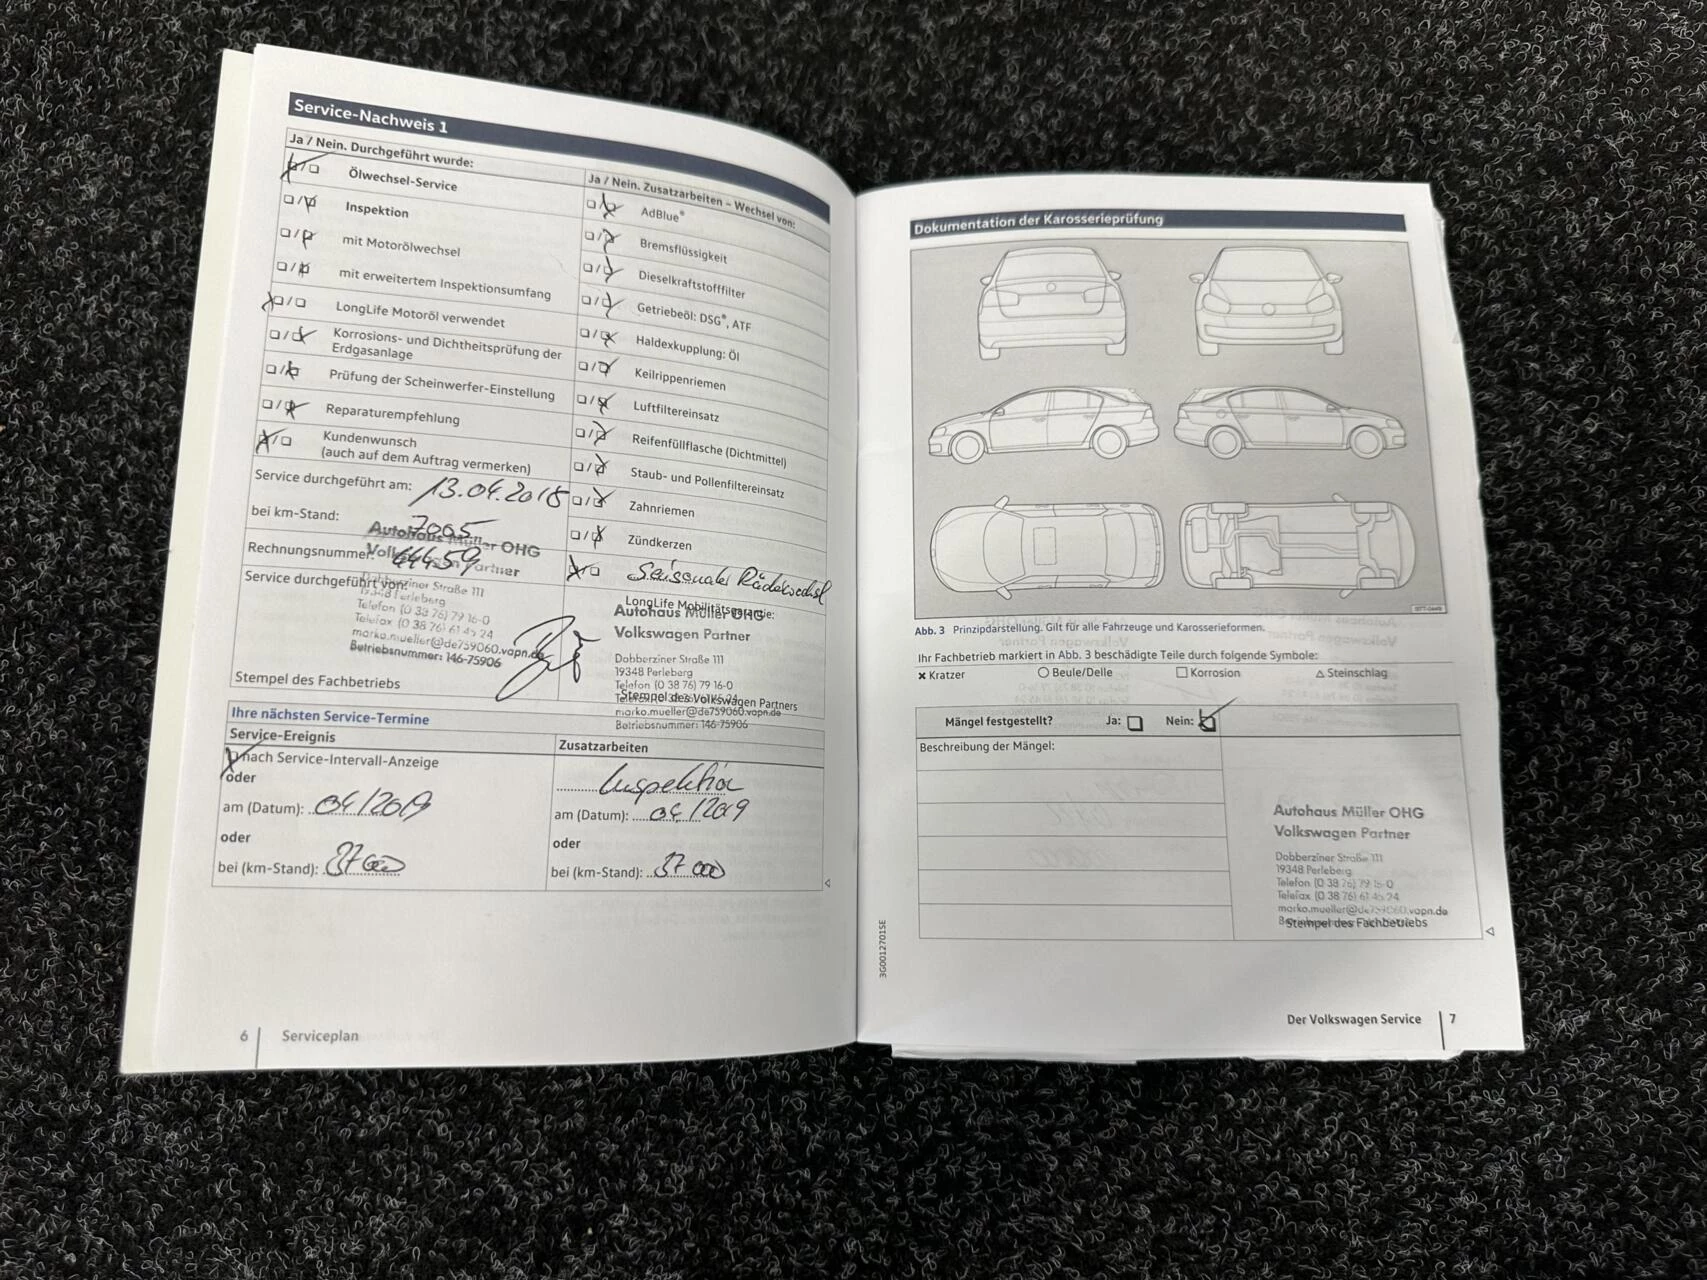 Service-Nachweis 1
Ja / Nein. Durchgeführt wurde:
Ölwechsel-Service
Inspektion
mit Motorölwechsel
mit erweitertem Inspektionsumfang
LongLife Motoröl verwendet
Korrosions- und Dichtheitsprüfung der
Erdgasanlage
Prüfung der Scheinwerfer-Einstellung
Reparaturempfehlung
Kundenwunsch
(auch auf dem Auftrag vermerken)
Service durchgeführt am: 13.04.2018
bei km-Stand: 7005
Rechnungsnummer: 44459
Service durchgeführt von:
Autohaus Müller OHG
Volkswagen Partner
Dobberziner Straße 111
19348 Perleberg
Telefon (0 38 76) 79 16-0
Telefax (0 38 76) 61 45 24
marko.mueller@de759060.vapn.de
Betriebsnummer: 146-75906
Stempel des Fachbetriebs
Ja / Nein. Zusatzarbeiten – Wechsel von:
AdBlue®
Bremsflüssigkeit
Dieselkraftstofffilter
Getriebeöl: DSG®, ATF
Haldexkupplung: Öl
Keilrippenriemen
Luftfiltereinsatz
Reifenfüllflasche (Dichtmittel)
Staub- und Pollenfiltereinsatz
Zahnriemen
Zündkerzen
Saisonaler Räderwechsel
LongLife Mobilitätsgarantie:
Autohaus Müller OHG
Volkswagen Partner
Dobberziner Straße 111
19348 Perleberg
Telefon (0 38 76) 79 16-0
Stempel des Volkswagen Partners
marko.mueller@de759060.vapn.de
Betriebsnummer: 146-75906
Ihre nächsten Service-Termine
Service-Ereignis
nach Service-Intervall-Anzeige
oder
am (Datum): 04/2019
oder
bei (km-Stand): 37000
Zusatzarbeiten
Inspektion
am (Datum): 04/2019
oder
bei (km-Stand): 37000
6 Serviceplan
Dokumentation der Karosserieprüfung
Abb. 3 Prinzipdarstellung. Gilt für alle Fahrzeuge und Karosserieformen.
Ihr Fachbetrieb markiert in Abb. 3 beschädigte Teile durch folgende Symbole:
Kratzer Beule/Delle Korrosion Steinschlag
Mängel festgestellt? Ja: Nein:
Beschreibung der Mängel:
Autohaus Müller OHG
Volkswagen Partner
Dobberziner Straße 111
19348 Perleberg
Telefon (0 38 76) 79 16-0
Telefax (0 38 76) 61 45 24
marko.mueller@de759060.vapn.de
Stempel des Fachbetriebs
3G0012701SE
Der Volkswagen Service 7